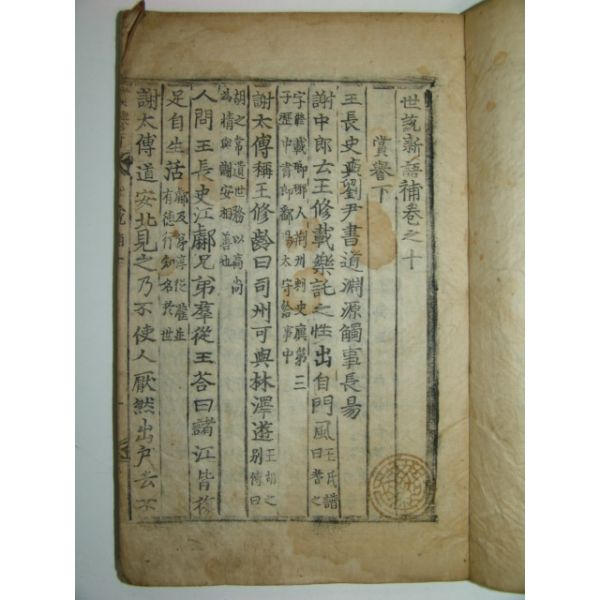 世說新語補卷之十
賞譽下
王長史與劉尹書道淵源觸事長易
謝中郎云王修載樂託之性出自門風王氏譜曰耆之
字脩載瑯琊人荆州刺史廙第三
子歷中書郎鄱陽太守給事中
謝太傅稱王修齡曰司州可與林澤遊王胡之別傳曰
胡之常遺世務以高尙
爲情與謝安相善也
人問王長史江虨兄弟羣從王荅曰諸江皆復
足自生活虨及弟淳從灌並有德行知名於世
謝太傅道安北見之乃不使人厭然出戶去不